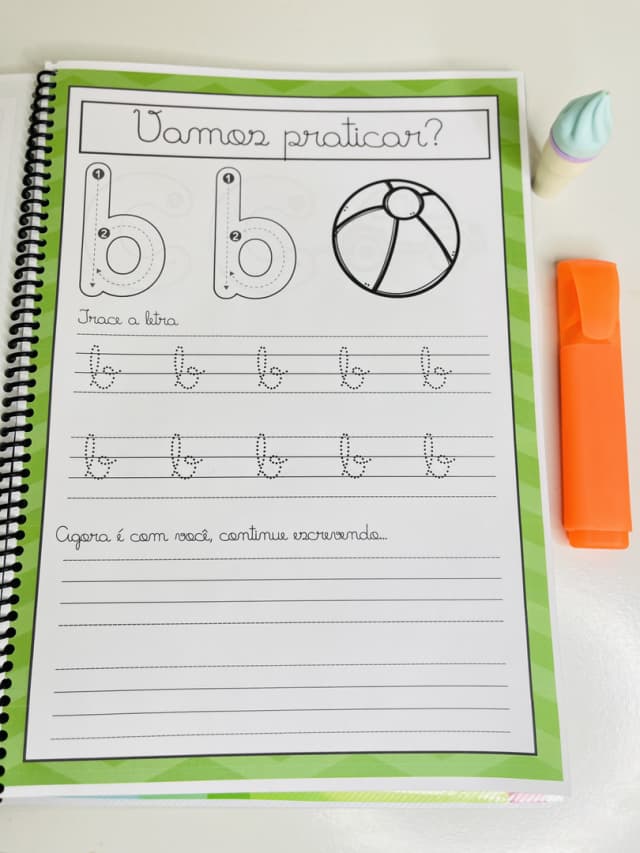 Vamos praticar?
1 1
2 2
b b
Trace a letra
b b b b b
b b b b b
Agora é com você, continue escrevendo...